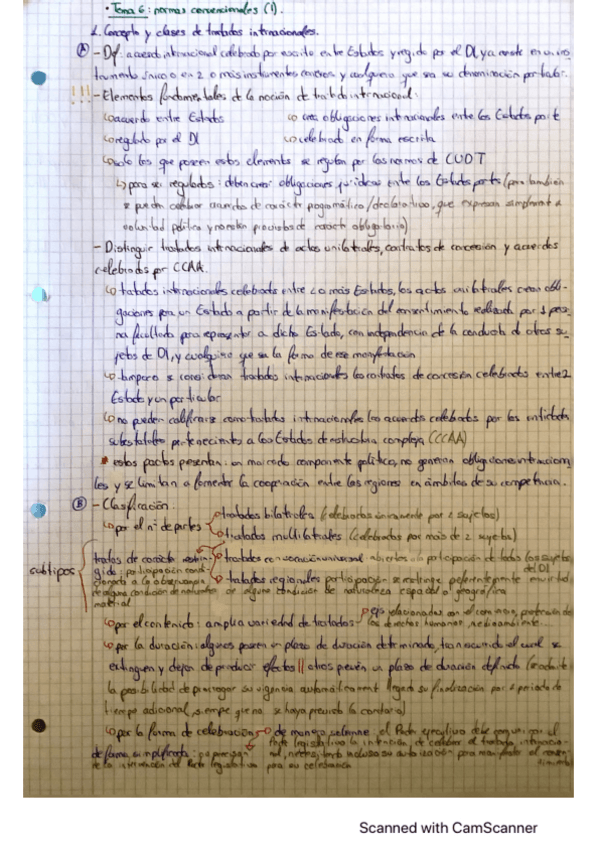 · Tema 6: normas convencionales (1).
1. Concepto y clases de tratados internacionales.
A - Df: acuerdo internacional celebrado por escrito entre Estados y regido por el DI ya conste en un ins
trumento único o en 2 o más instrumentos conexos y cualquiera que sea su denominación particular.
!!! - Elementos fundamentales de la noción de tratado internacional:
acuerdo entre Estados crea obligaciones internacionales entre los Estados parte
regulado por el DI celebrado en forma escrita
solo los que poseen estos elementos se regulan por las normas de CVDT
para ser regulados: deben crear obligaciones jurídicas entre los Estados parte (pero también
se pueden celebrar acuerdos de carácter programático/declarativo, que expresan simplemente
voluntad política y no están provistos de carácter obligatorio)
- Distinguir tratados internacionales de actos unilaterales, contratos de concesión y acuerdos
celebrados por CCAA.
tratados internacionales celebrados entre 2 o más Estados, los actos unilaterales crean obli-
gaciones para un Estado a partir de la manifestación del consentimiento realizada por 1 perso
na facultada para representar a dicho Estado, con independencia de la conducta de otros su
jetos de DI, y cualquiera que sea la forma de esa manifestación
tampoco se consideran tratados internacionales los contratos de concesión celebrados entre 1
Estado y un particular
no pueden calificarse como tratados internacionales los acuerdos celebrados por las entidades
subestatales pertenecientes a los Estados de estructura compleja (CCAA)
* estos pactos presentan un marcado componente político, no generan obligaciones internaciona
les y se limitan a fomentar la cooperación entre las regiones en ámbitos de su competencia.
B - Clasificación:
por el nº de partes tratados bilaterales (celebrados únicamente por 2 sujetos)
tratados multilaterales (celebrados por más de 2 sujetos)
subtipos
tratados de carácter restringido: participación condicionada a la observancia de alguna condición de naturaleza material
tratados con vocación universal abiertos a la participación de todos los sujetos del DI
tratados regionales participación se restringe preferentemente en virtud
de alguna condición de naturaleza espacial o geográfica
por el contenido: amplia variedad de tratados p.ej. relacionados con el comercio, protección de
los derechos humanos, medioambiente...
por la duración: algunos poseen un plazo de duración determinado, transcurrido el cual se
extinguen y dejan de producir efectos || otros prevén un plazo de duración definido (mediante
la posibilidad de prorrogar su vigencia automáticamente llegada su finalización por 1 periodo de
tiempo adicional, siempre que no se haya previsto lo contrario)
por la forma de celebración de manera solemne: el Poder ejecutivo debe
Poder legislativo la intención de celebrar el tratado internacio
nal, necesitando incluso su autorización para manifestar el consen
timiento
de forma simplificada: no precisan
de la intervención del Poder legislativo para su celebración
Scanned with CamScanner